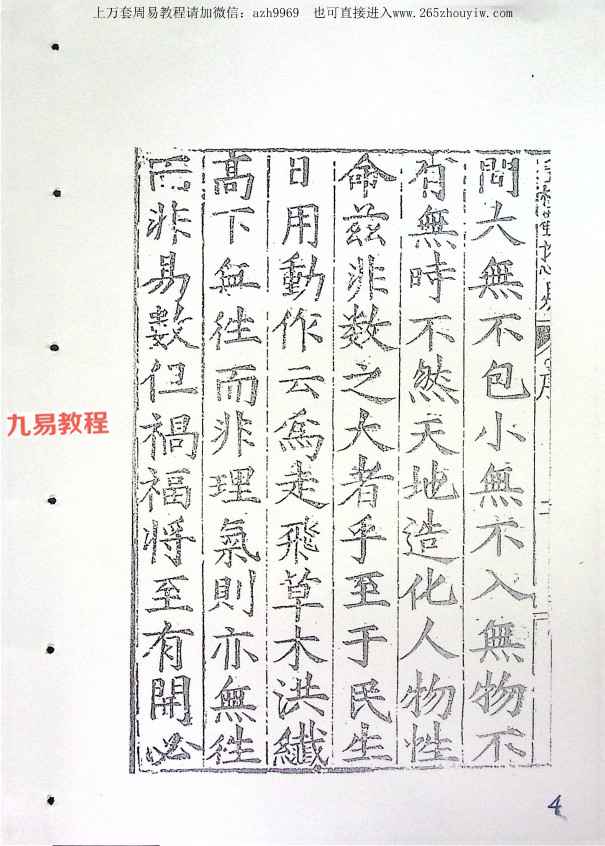 上万套周易教程请加微信：azh9969　也可直接进入www.265zhouyiw.com
間大無不包小無不入無物不
有無時不然天地造化人物性
命兹非数之大者乎至于民生
日用動作云爲走飛草木洪纖
高下無徃而非理氣則亦無徃
而非易數但禍福将至有開必
九易教程
4